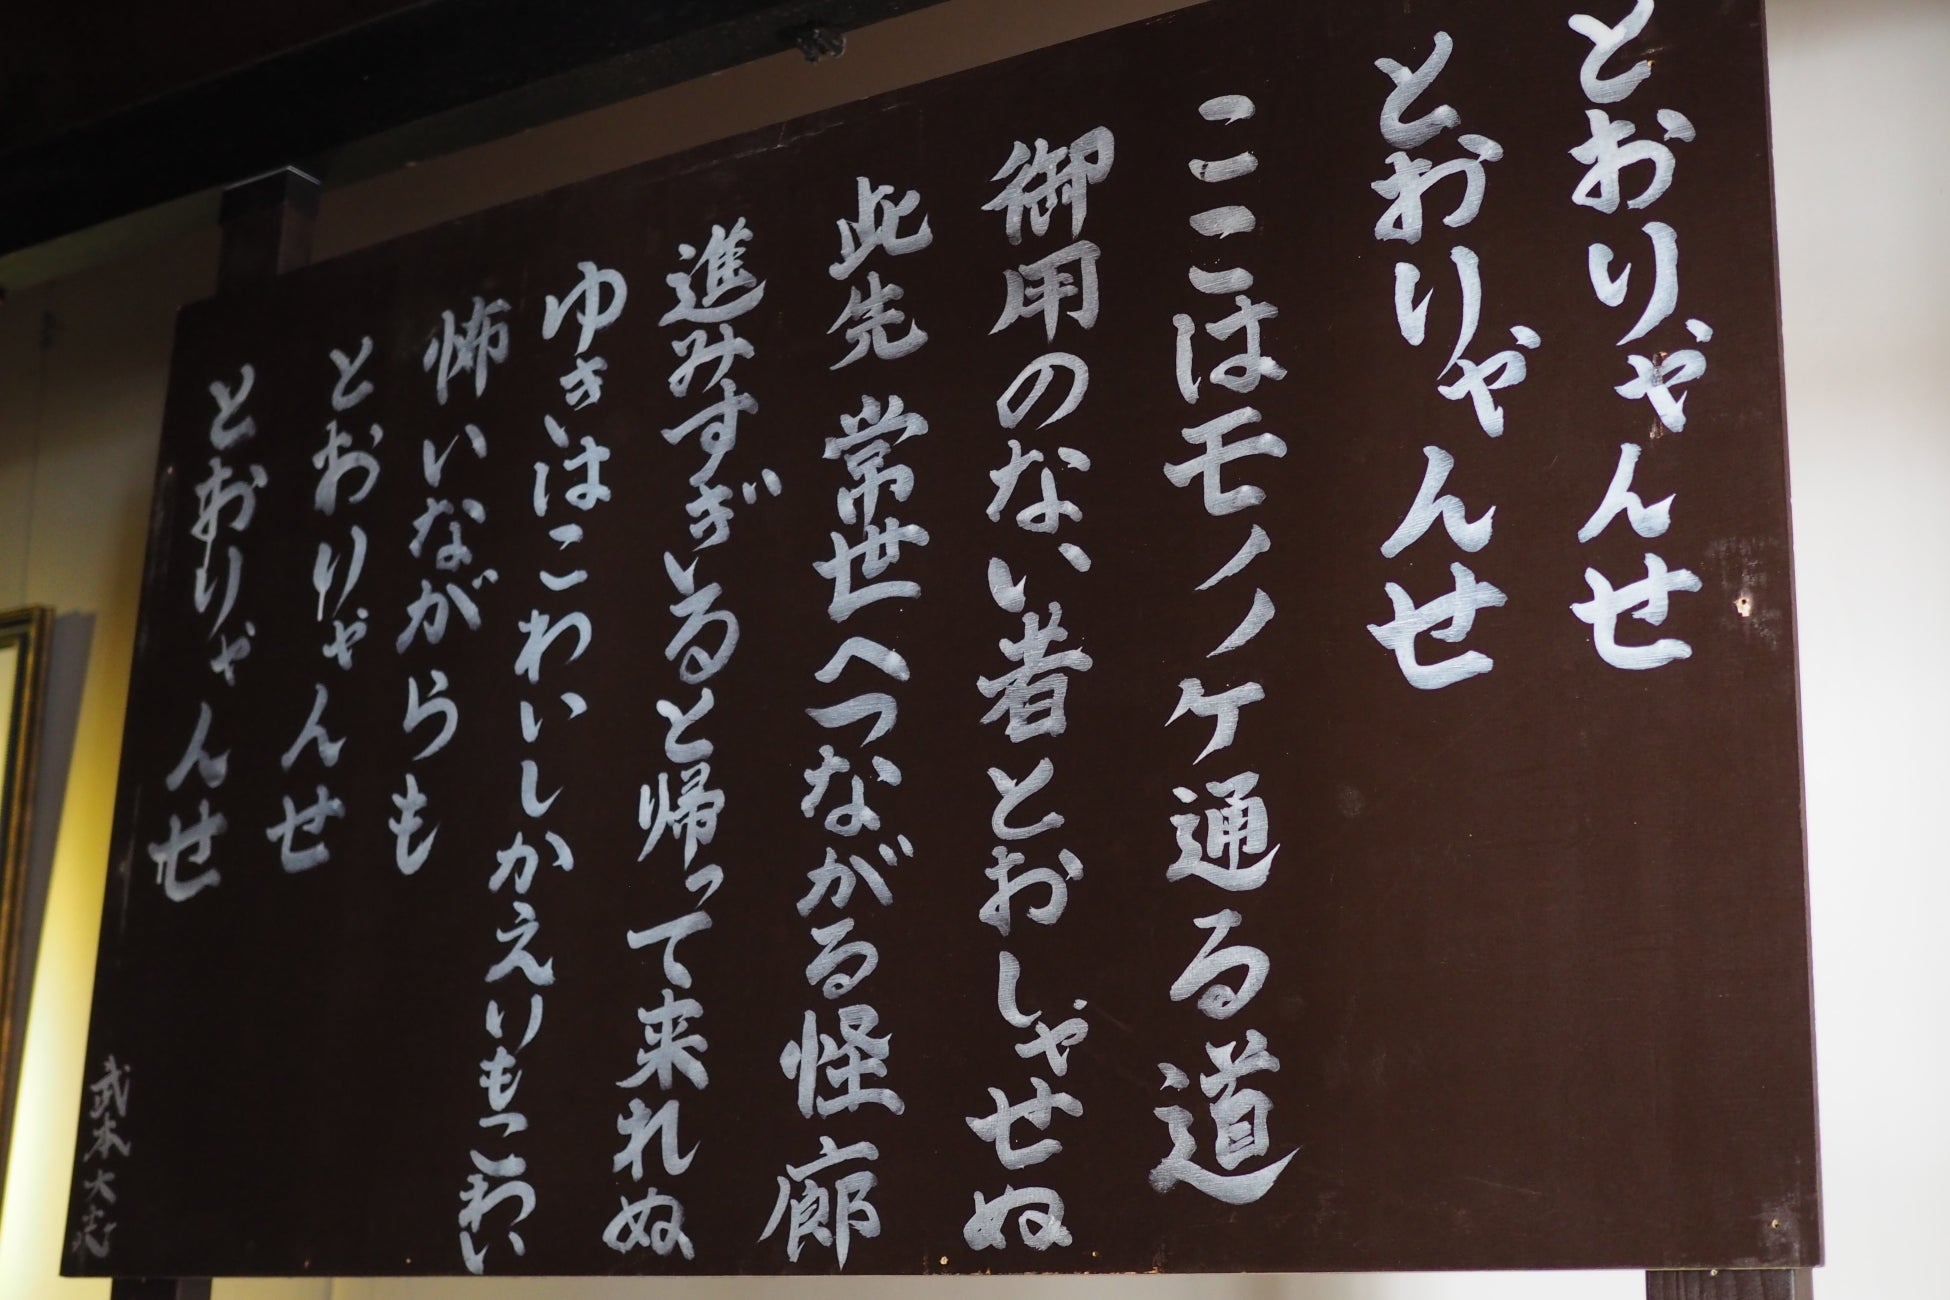 とおりゃんせ
とおりゃんせ
ここはモノノケ通る道
御用のない者とおしゃせぬ
此先 常世へつながる怪廊
進みすぎいると帰って来れぬ
ゆきはこわいしかえりもこわい
怖いながらも
とおりゃんせ
とおりゃんせ
武本大志